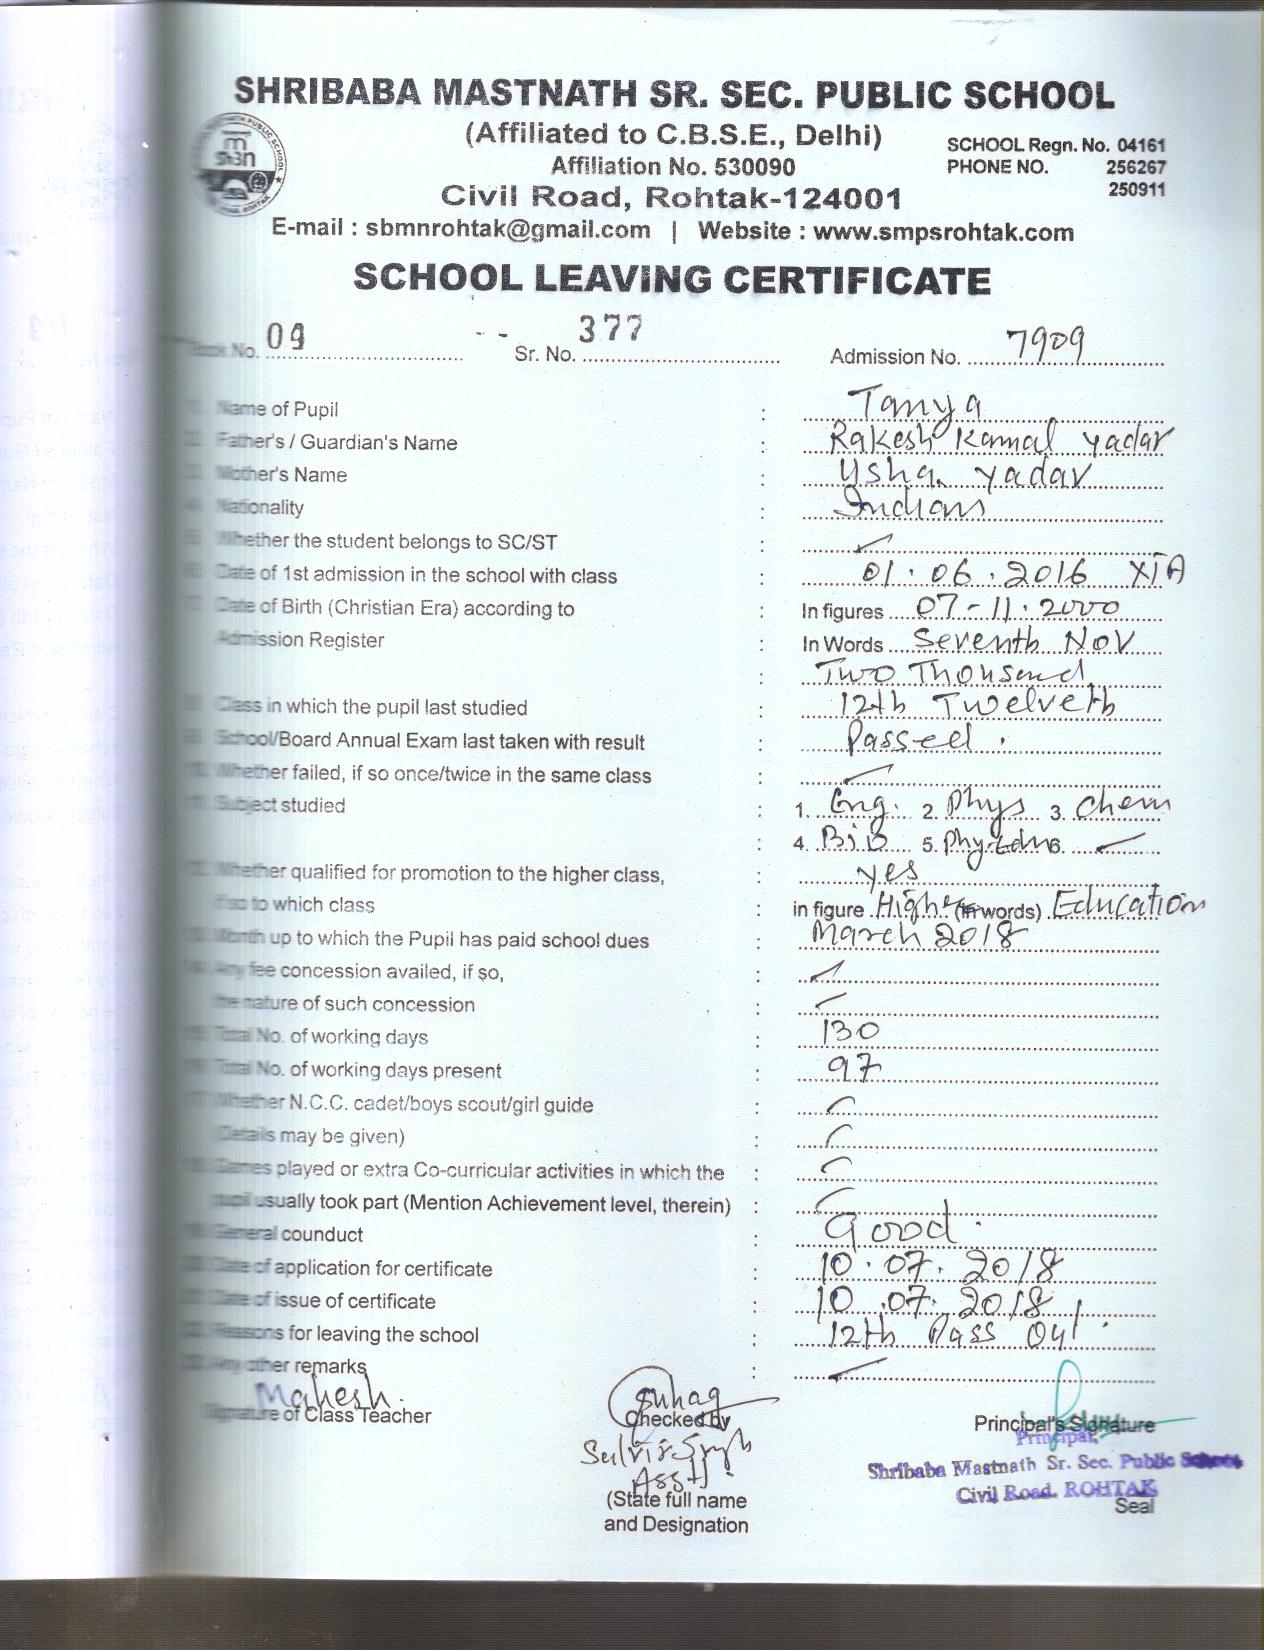 SHRIBABA MASTNATH SR. SEC. PUBLIC SCHOOL
(Affiliated to C.B.S.E., Delhi)
Affiliation No. 530090
SCHOOL Regn. No. 04161
PHONE NO. 256267
250911
Civil Road, Rohtak-124001
E-mail : sbmnrohtak@gmail.com | Website : www.smpsrohtak.com
SCHOOL LEAVING CERTIFICATE
Book No. 04 Sr. No. 377 Admission No. 7909
Name of Pupil : Tanya
Father's / Guardian's Name : Rakesh Kamal Yadav
Mother's Name : Usha Yadav
Nationality : Indian
Whether the student belongs to SC/ST :
Date of 1st admission in the school with class : 01.06.2016 XIA
Date of Birth (Christian Era) according to : In figures 07-11.2000
Admission Register : In Words Seventh Nov
: Two Thousand
Class in which the pupil last studied : 12th Twelveth
School/Board Annual Exam last taken with result : Passed.
Whether failed, if so once/twice in the same class :
Subject studied : 1. Eng. 2. Phys 3. Chem
4. Bio 5. Phy.Edn 6.
Whether qualified for promotion to the higher class, : yes
if so to which class : in figure Higher (in words) Education
Month up to which the Pupil has paid school dues : March 2018
Any fee concession availed, if so, :
the nature of such concession :
Total No. of working days : 130
Total No. of working days present : 97
Whether N.C.C. cadet/boys scout/girl guide :
(Details may be given) :
Games played or extra Co-curricular activities in which the :
pupil usually took part (Mention Achievement level, therein) :
General counduct : Good.
Date of application for certificate : 10.07.2018
Date of issue of certificate : 10.07.2018
Reasons for leaving the school : 12th Pass Out.
Any other remarks :
Mahesh
Signature of Class Teacher
Suhag
Checked by
Asstt.
(State full name
and Designation
Principal's Signature
Principal,
Shribaba Mastnath Sr. Sec. Public School
Civil Road. ROHTAK
Seal